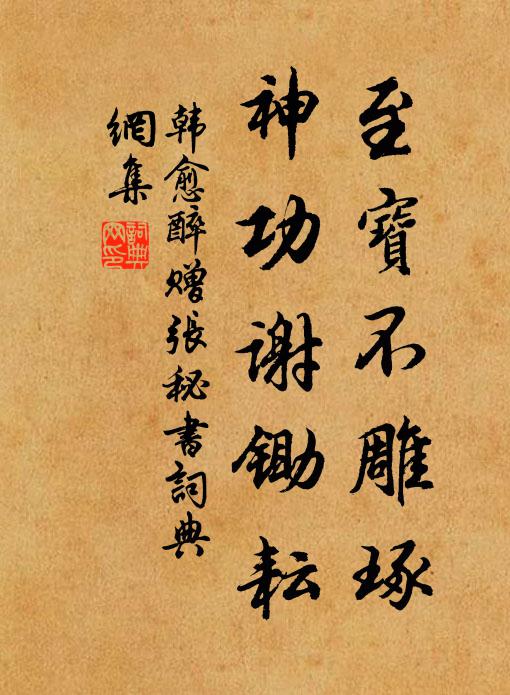 至寶不雕琢
神功謝鋤耘
韩愈醉赠張秘書詞典
網集
詞典
网印